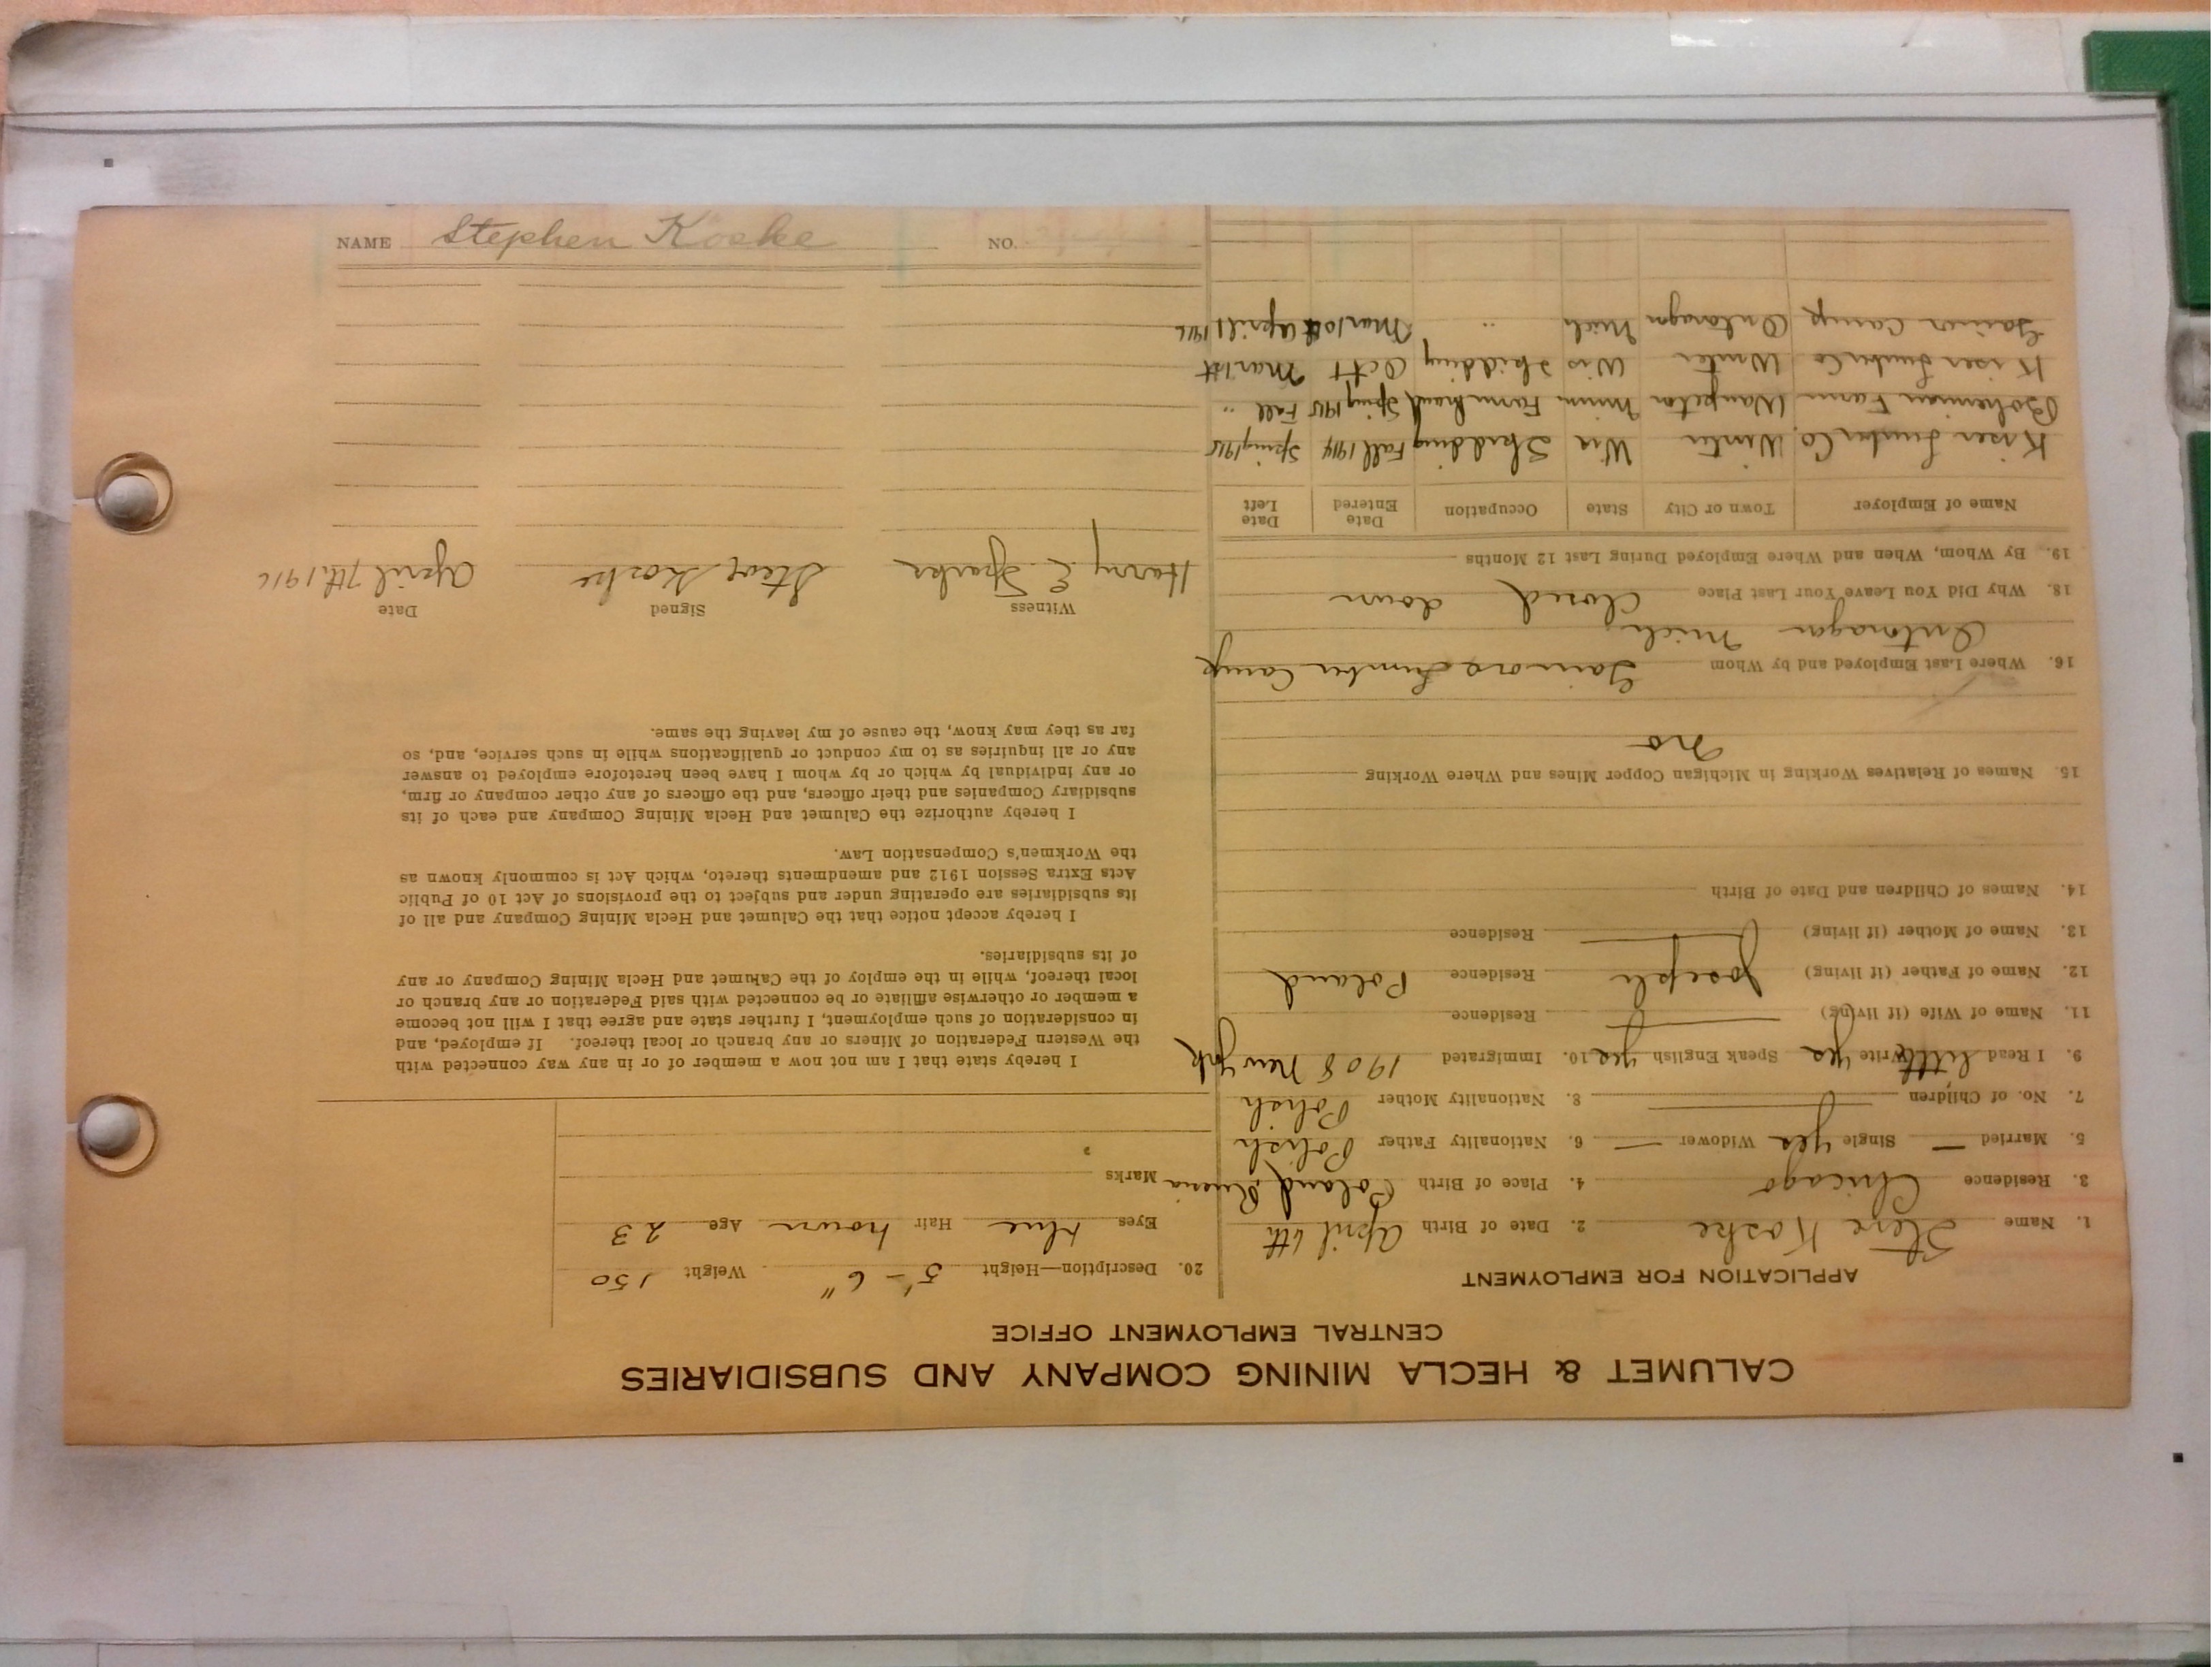 CALUMET & HECLA MINING COMPANY AND SUBSIDIARIES
CENTRAL EMPLOYMENT OFFICE
APPLICATION FOR EMPLOYMENT
1. Name Steve Koske 2. Date of Birth April 6th
3. Residence Chicago 4. Place of Birth Poland Russia
5. Married — Single yes Widower — 6. Nationality Father Polish
7. No. of Children — 8. Nationality Mother Polish
9. I Read little Write yes Speak English yes 10. Immigrated 1908 New York
11. Name of Wife (if living) — Residence
12. Name of Father (if living) Joseph Residence Poland
13. Name of Mother (if living) — Residence
14. Names of Children and Date of Birth
15. Names of Relatives Working in Michigan Copper Mines and Where Working
no
16. Where Last Employed and by Whom Lumber Camp
Ontonagon Mich
18. Why Did You Leave Your Last Place Closed down
19. By Whom, When and Where Employed During Last 12 Months
Name of Employer Town or City State Occupation Date Entered Date Left
Kiser Lumber Co. Winter Wis Skidding Fall 1914 Spring 1915
Bohemian Farm Waupeton Minn Farm hand Spring 1915 Fall "
Kiser Lumber Co Winter Wis Skidding Oct 1 Mar 1st
Camp Ontonagon Mich " Mar 10th April 1 1916
20. Description—Height 5'-6" Weight 150
Eyes blue Hair brown Age 23
Marks
I hereby state that I am not now a member of or in any way connected with
the Western Federation of Miners or any branch or local thereof. If employed, and
in consideration of such employment, I further state and agree that I will not become
a member or otherwise affiliate or be connected with said Federation or any branch or
local thereof, while in the employ of the Calumet and Hecla Mining Company or any
of its subsidiaries.
I hereby accept notice that the Calumet and Hecla Mining Company and all of
its subsidiaries are operating under and subject to the provisions of Act 10 of Public
Acts Extra Session 1912 and amendments thereto, which Act is commonly known as
the Workmen's Compensation Law.
I hereby authorize the Calumet and Hecla Mining Company and each of its
subsidiary Companies and their officers, and the officers of any other company or firm,
or any individual by which or by whom I have been heretofore employed to answer
any or all inquiries as to my conduct or qualifications while in such service, and, so
far as they may know, the cause of my leaving the same.
Witness Signed Date
Harry E. Sparks Steve Koske April 7th 1916
NAME Stephen Koske NO.